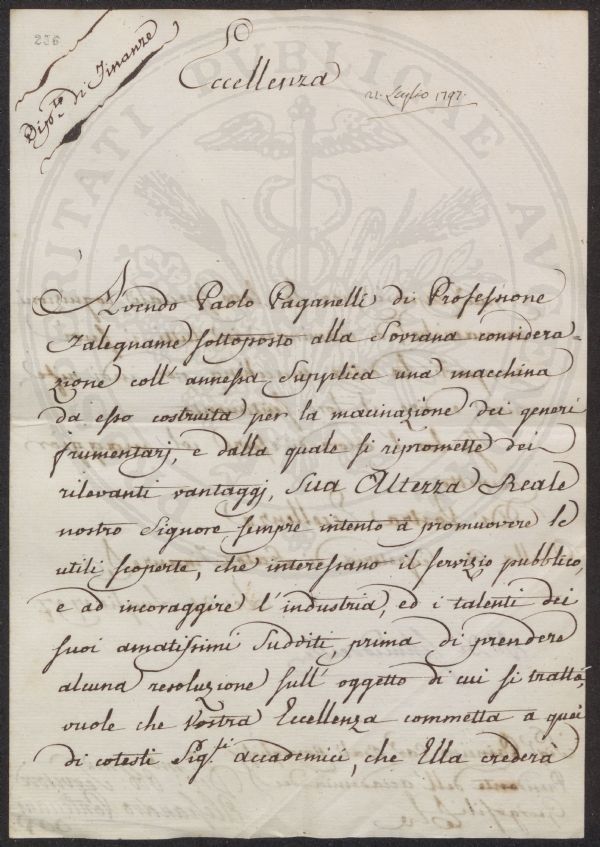 236
Dip.to di Finanze
Eccellenza
21. Luglio 1797.
VERITATI PUBLICAE
Avendo Paolo Paganelli di Professione
Falegname sottoposto alla Sovrana considera=
zione coll' annessa Supplica una macchina
da esso costruita per la macinazione dei generi
frumentarj, e dalla quale si ripromette dei
rilevanti vantaggj, Sua Altezza Reale
nostro Signore sempre intento a promuovere le
utili scoperte, che interessano il servizio pubblico,
e ad incoraggire l' industria, ed i talenti dei
suoi amatissimi Sudditi, prima di prendere
alcuna resoluzione sull' oggetto di cui si tratta,
vuole che Vostra Eccellenza commetta a quei
di cotesti Sig.ri accademici, che Ella crederà